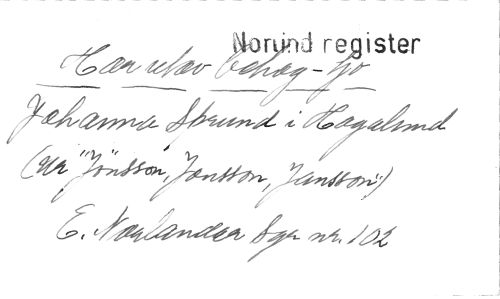 Norlind register
Har utav behag-sjö
Johanna Sprund i Hagalund
(ur "Jönsson, Jonsson, Jansson")
E. Norlander Sgr nr. 102